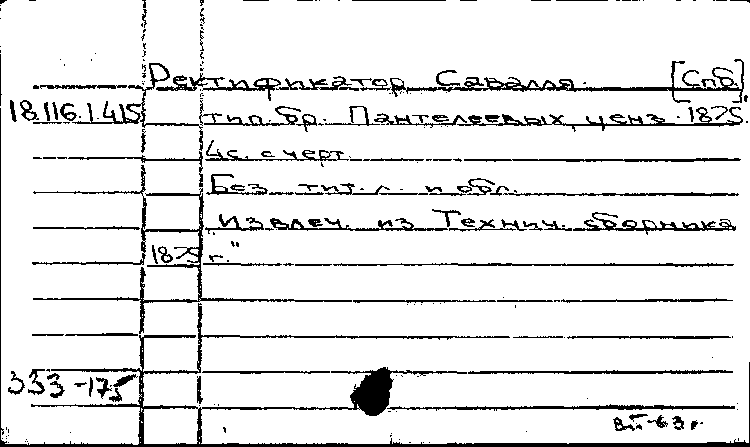 Ректификатор Саваля. [Спб],
18.116.1.415 тип. бр. Пантелеевых, ценз. 1875.
4с. с черт.
Без тит. л. и обл.
"Извлеч. из Технич. сборника
1875 г."
333-175
63 г.